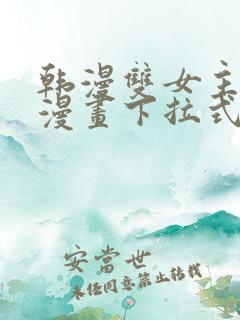 韩漫雙女主
漫畫下拉式
安當世
未经同意禁止转载